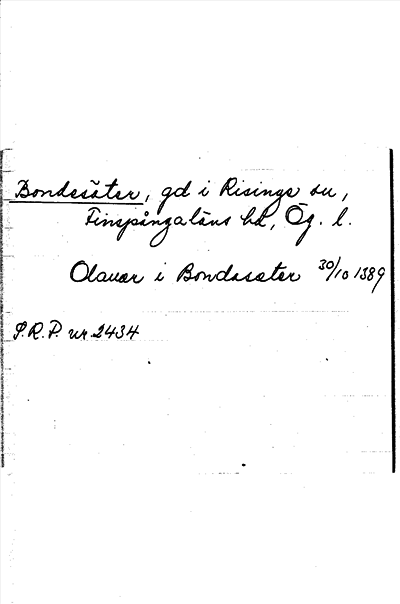 Bondesäter, gd i Risinge su,
Finspångaläns hd, Ög. l.
Olauar i Bondasater 30/10 1389
S.R.P. nr 2434